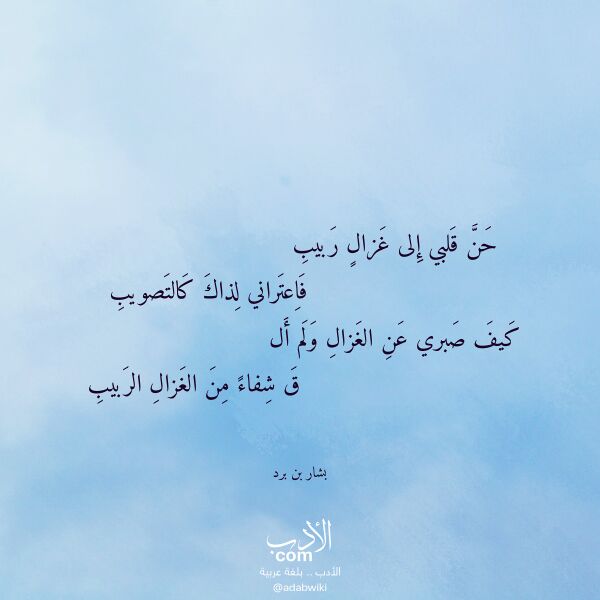 حَنَّ قَلبي إِلى غَزالٍ رَبيبِ
فَاِعتَراني لِذاكَ كَالتَصويبِ
كَيفَ صَبري عَنِ الغَزالِ وَلَم أَل
قَ شِفاءً مِنَ الغَزالِ الرَبيبِ
بشار بن برد
الأدب
com
الأدب .. بلغة عربية
@adabwiki